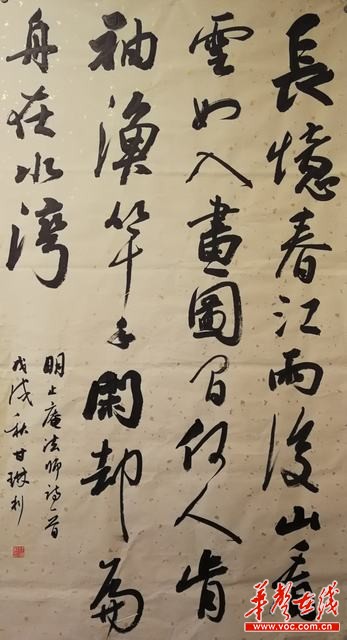 長憶春江雨後山看
雲如入畫圖間何人肯
袖漁竿手閑却扁
舟在水灣
明止庵法師詩一首
戊戌秋甘琳利
华声在线
www.voc.com.cn